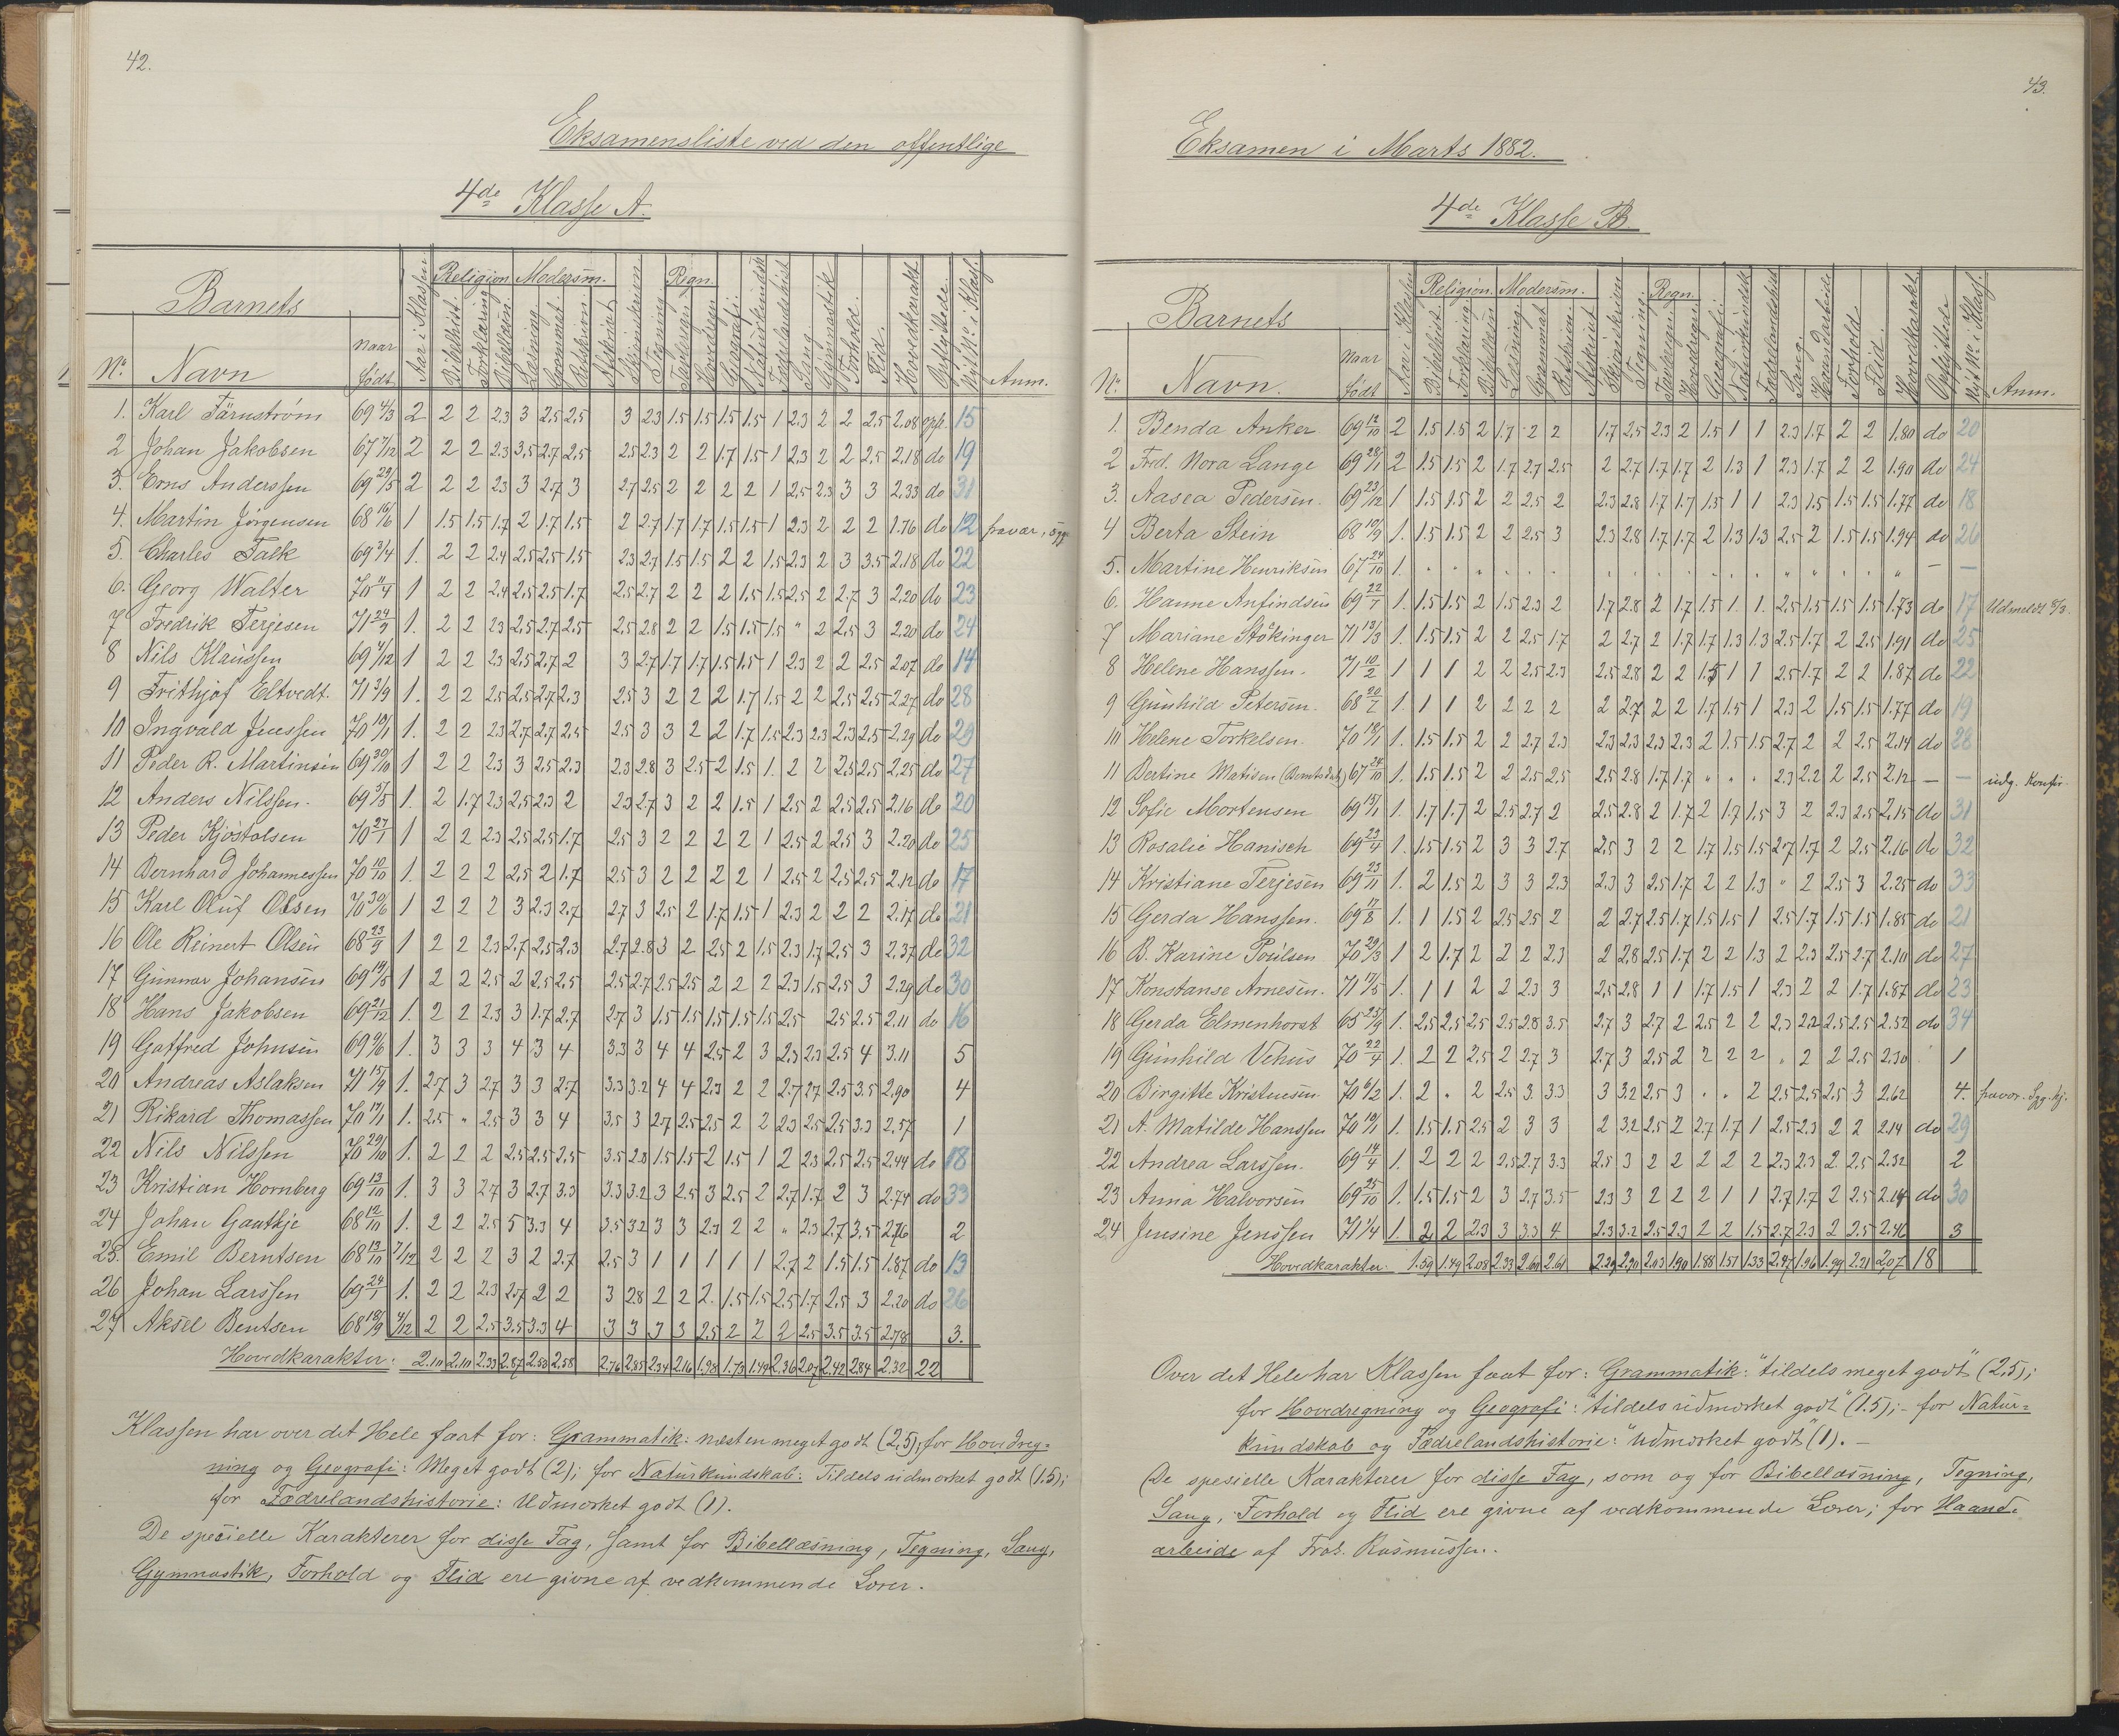 42.
Eksamensliste ved den offentlige
4de Klasse A.
Barnets
No. Navn naar født Aar i Klassen Religion Modersm. Regn. Anm.
Bibelhist. Forklaring Bibellæsn. Læsning Grammat. Retskrivn. Afskrivt Skjønskriven Tegning Tavleregn. Hovedregn. Geografi. Naturkundsk. Fædrelandshist. Sang Gymnastik Forhold. Flid. Hovedkarakt. Opflyttede. Nyt No. i Klass.
1. Karl Tärnstrøm 69 4/3 2 2 2 2.3 3 2.5 2.5 3 2.3 1.5 1.5 1.5 1.5 1 2.3 2 2 2.5 2.08 opfl. 15
2 Johan Jakobsen 67 7/12 2 2 2 2.3 3.5 2.7 2.5 2.5 2.3 2 2 1.7 1.5 1 2.3 2 2 2.5 2.18 do 19
3. Erns Anderssen 69 29/5 2 2 2 2.3 3 2.7 3 2.7 2.5 2 2 2 2 1 2.5 2.3 3 3 2.33 do 31
4. Martin Jørgensen 68 16/6 1 1.5 1.5 1.7 2 1.7 1.5 2 2.7 1.7 1.7 1.5 1.5 1 2.3 2 2 2 1.76 do 12 fravær, sygd.
5. Charles Falk 69 3/4 1. 2 2 2.4 2.5 2.5 1.5 2.3 2.7 1.5 1.5 2 2 1.5 2.3 2 3 3.5 2.18 do 22
6. Georg Walter 70 11/4 1 2 2 2.4 2.5 2.5 1.7 2.5 2.7 2 2 2 1.5 1.5 2.5 2 2.7 3 2.20 do 23
7 Fredrik Terjesen 71 24/9 1. 2 2 2.3 2.5 2.7 2.5 2.5 2.8 2 2 1.5 1.5 1.5 " 2 2.5 3 2.20 do 24
8 Nils Klaussen 69 4/12 1 2 2 2.3 2.5 2.7 2 3 2.7 1.7 1.7 1.5 1.5 1 2.3 2 2 2.5 2.07 do 14
9 Frithjof Eltvedt. 71 3/9 1. 2 2 2.5 2.5 2.7 2.3 2.5 3 2 2 2 1.7 1.5 2 2 2.5 2.5 2.27 do 28
10 Ingvald Jenssen 70 10/1 1. 2 2 2.3 2.7 2.7 2.5 2.5 3 3 2 2 1.7 1.5 2.3 2.3 2.3 2.5 2.29 do 29
11 Peder R. Martinsen 69 30/10 1 2 2 2.3 3 2.5 2.3 2.3 2.8 3 2.5 2 1.5 1. 2 2 2.5 2.5 2.25 do 27
12 Anders Nilssen. 69 3/5 1. 2 1.7 2.3 2.5 2.3 2 2.3 2.7 3 2 2 1.5 1 2.5 2 2.5 2.5 2.16 do 20
13 Peder Kjöstolsen 70 27/1 1 2 2 2.3 2.5 2.5 1.7 2.5 3 2 2 2 2 1 2.5 2 2.5 3 2.20 do 25
14 Bernhard Johannessen 70 10/10 1. 2 2 2 2.5 2 1.7 2.5 3 2 2 2 2 1 2.5 2 2.5 2.5 2.12 do 17
15 Karl Oluf Olsen 70 30/6 1 2 2 2 3 2.3 2.7 2.7 3 2.5 2 1.7 1.5 1 2.3 2 2 2 2.17 do 21
16 Ole Reinert Olsen 68 23/9 1 2 2 2.3 2.7 2.5 2.3 2.7 2.8 3 2 2.5 2 1.5 2.3 1.7 2.5 3 2.37 do 32
17 Gunnar Johansen 69 14/5 1 2 2 2.5 2 2.5 2.5 2.5 2.7 2.5 2.5 2 2 2 2.3 1.5 2.5 3 2.29 do 30
18 Hans Jakobsen 69 21/12 1. 2 2 2.3 3 1.7 2.7 2.7 3 1.5 1.5 1.5 1.5 1.5 2.5 2.5 2.5 2.11 do 16
19 Gotfred Johnsen 69 9/6 1. 3 3 3 4 3 4 3.3 3 4 4 2.5 2 3 2.3 2.3 2.5 4 3.11 5
20 Andreas Aslaksen 71 15/9 1. 2.7 3 2.7 3 3 2.7 3.3 3.2 4 4 2.3 2 2 2.7 2.7 2.5 3.5 2.90 4
21 Rikard Thomassen 70 17/1 1. 2.5 " 2.5 3 3 4 3.5 3 2.7 2.5 2.5 2 2 2.3 2.5 2.5 3.3 2.57 1
22 Nils Nilssen 70 29/10 1. 2 2 2 2.5 2.5 2.5 3.5 2.8 1.5 1.5 2 1.5 1 2 2.3 2.5 2.5 2.44 do 18
23 Kristian Hornberg 69 13/10 1. 3 3 2.7 3 2.7 3.3 3.3 3.2 3 2.5 3 2.5 2 2.7 1.7 2 3 2.74 do 33
24 Johan Gautkje 68 12/10 1. 2 2 2.5 5 3.3 4 3.5 3.2 3 3 2.3 2 2 " 2.3 2.7 3.5 2.76 2
25. Emil Berntsen 68 13/10 7/12 2 2 2 3 2 2.7 2.5 3 1 1 1 1 1 2.7 2 1.5 1.5 1.87 do 13
26 Johan Larssen 69 24/1 1. 2 2 2.3 2.7 2 2 3 2.8 2 2 2. 1.5 1.5 2.5 1.7 2.5 3 2.20 do 26
27 Aksel Bentsen 68 18/9 4/12 2 2 2.5 3.5 3.3 4 3 3 3 3 2.5 2 2 2 2.5 3.5 3.5 2.78 3.
Hovedkarakter: 2.10 2.10 2.33 2.87 2.53 2.58 2.76 2.85 2.34 2.16 1.98 1.73 1.42 2.36 2.07 2.42 2.84 2.32 22
Klassen har over det Hele faat for: Grammatik: næsten meget godt (2,5); for Hovedreg=
ning og Geografi: Meget godt (2); for Naturkundskab: Tildels udmærket godt (1.5);
for Fædrelandshistorie: Udmærket godt (1).
De specielle Karakterer for disse Fag, samt for Bibellæsning, Tegning, Sang,
Gymnastik, Forhold og Flid ere givne af vedkommende Lærer.
43.
Eksamen i Marts 1882.
4de Klasse B.
Barnets
No. Navn. naar født Aar i Klassen Religion. Modersm. Regn. Anm.
Bibelhist. Forklaring Bibellæsn. Læsning. Grammat. Retskrivn. Afskrivt Skjønskriven Tegning. Tavleregn. Hovedregn. Geografi. Naturkundsk. Fædrelandshist. Sang. Haandarbeide Forhold. Flid. Hovedkarakt. Opflyttede. Nyt No. i Klass.
1. Benda Anker 69 12/10 2 1.5 1.5 2 1.7 2 2 1.7 2.5 2.3 2 1.5 1 1 2.3 1.7 2 2 1.80 do 20
2 Fred. Nora Lange 69 28/1 2 1.5 1.5 2 1.7 2.7 2.5 2 2.7 1.7 1.7 2 1.3 1 2.3 1.7 2 2 1.90 do 24
3. Aasea Pedersen. 69 23/12 1 1.5 1.5 2 2 2.5 2 2.3 2.8 1.7 1.7 1.5 1 1 2.3 1.5 1.5 1.5 1.77 do 18
4 Berta Stein 68 10/9 1. 1.5 1.5 2 2 2.5 3 2.3 2.8 1.7 1.7 2 1.3 1.3 2.5 2 1.5 1.5 1.94 do 26
5. Martine Henriksen 67 24/10 1. — —
6. Hanne Anfindsen 69 22/7 1. 1.5 1.5 2 1.5 2.3 2 1.7 2.8 2 1.7 1.5 1. 1. 2.5 1.5 1.5 1.5 1.73 do 17 Udmeldt 8/3.
7 Mariane Stökinger 71 13/3 1. 1.5 1.5 2 2 2.5 1.7 2 2.7 2 1.7 1.7 1.3 1.3 2.5 1.7 2 2.5 1.91 do 25
8 Helene Hanssen. 71 10/2 1 1 1 2 2 2.5 2.3 2.5 2.8 2 2 1.5 1 1 2.5 1.7 2 2 1.87 do 22
9 Gunhild Petersen. 68 20/7 1. 1 1 2 2 2 2 2 2.7 2 2 1.7 1.5 1 2.3 2 1.5 1.5 1.77 do 19
10 Helene Torkelsen. 70 18/1 1. 1.5 1.5 2 2 2.7 2.3 2.3 2.3 2.3 2.3 2 1.5 1.5 2.7 2 2 2.5 2.14 do 28
11 Bertine Matisen 67 24/10 1. 1.5 1.5 2 2 2.5 2.5 2.5 2.8 1.7 1.7 " " " 2.3 2.2 2 2.5 2.12 — — udg. Konfir.
12 Sofie Mortensen 69 15/1 1. 1.7 1.7 2 2.5 2.7 2 2.5 2.8 2 1.7 2 1.7 1.5 3 2 2.3 2.5 2.15 do 31
13 Rosalie Hanisch 69 23/4 1. 1.5 1.5 2 3 3 2.7 2.5 3 2 2 1.7 1.5 1.5 2.7 1.7 2 2.5 2.16 do 32
14 Kristiane Terjesen 69 23/11 1. 2 1.5 2 3 3 2.3 2.3 3 2.5 1.7 2 2 1.3 " 2 2.5 3 2.25 do 33
15 Gerda Hanssen. 69 17/8 1. 1 1.5 2 2.5 2.5 2 2 2.7 2.5 1.7 1.5 1.5 1 2.5 1.7 1.5 1.5 1.85 do 21
16 B. Karine Poulsen 70 29/3 1 2 1.7 2 2 2 2.3 2 2.8 2.5 1.7 2 2 1.3 2 2.3 2.5 2.7 2.10 do 27
17 Konstanse Arnesen. 71 17/5 1. 1 1 2 2 2.3 3 2.5 2.8 1 1 1.7 1.5 1 2.3 2 2 1.7 1.87 do 23
18 Gerda Elmenhorst 65 25/9 1. 2.5 2.5 2.5 2.5 2.8 3.5 2.7 3 2.7 2 2.5 2 2 2.3 2.2 2.5 2.5 2.52 do 34
19 Gunhild Vehus 70 22/4 1. 2 2 2.5 2 2.7 3 2.7 3 2.5 2 2 2 2 " 2 2 2.5 2.30 1
20 Birgitte Kristensen 70 6/2 1. 2 " 2 2.5 3 3.3 3 3.2 2.5 3 " " 2 2.5 2.5 2.5 3 2.62 4. fravær.
21 A. Matilde Hanssen 70 10/1 1. 1.5 1.5 2.5 2 3 3 2 3.2 2.5 2 2.7 1.7 1 2.5 2.3 2 2 2.14 do 29
22 Andrea Larssen. 69 14/4 1. 2 2 2 2.5 2.7 3.3 2.5 3 2 2 2 2 2 2.3 2.3 2 2.5 2.32 2
23 Anna Halvorsen 69 25/10 1. 1.5 1.5 2 3 2.7 3.5 2.3 3 2 2 2 1 1 2.7 1.7 2 2.5 2.14 do 30
24 Jensine Jenssen 71 1/4 1. 2 2 2.3 3 3.3 4 2.3 3.2 2.5 2.3 2 2 1.5 2.7 2.3 2 2.5 2.46 3
Hovedkarakter. 1.59 1.49 2.08 2.33 2.60 2.61 2.29 2.90 2.03 1.90 1.88 1.57 1.33 2.47 1.96 1.99 2.21 2.07 18
Over det Hele har Klassen faat for: Grammatik: "tildels meget godt" (2,5);
for Hovedregning og Geografi: "tildels udmærket godt" (1.5); – for Natur=
kundskab og Fædrelandshistorie: "Udmærket godt" (1). –
De spesielle Karakterer for disse Fag, som og for Bibellæsning, Tegning,
Sang, Forhold og Flid ere givne af vedkommende Lærer; for Haand-
arbeide af Frøk. Rasmussen.